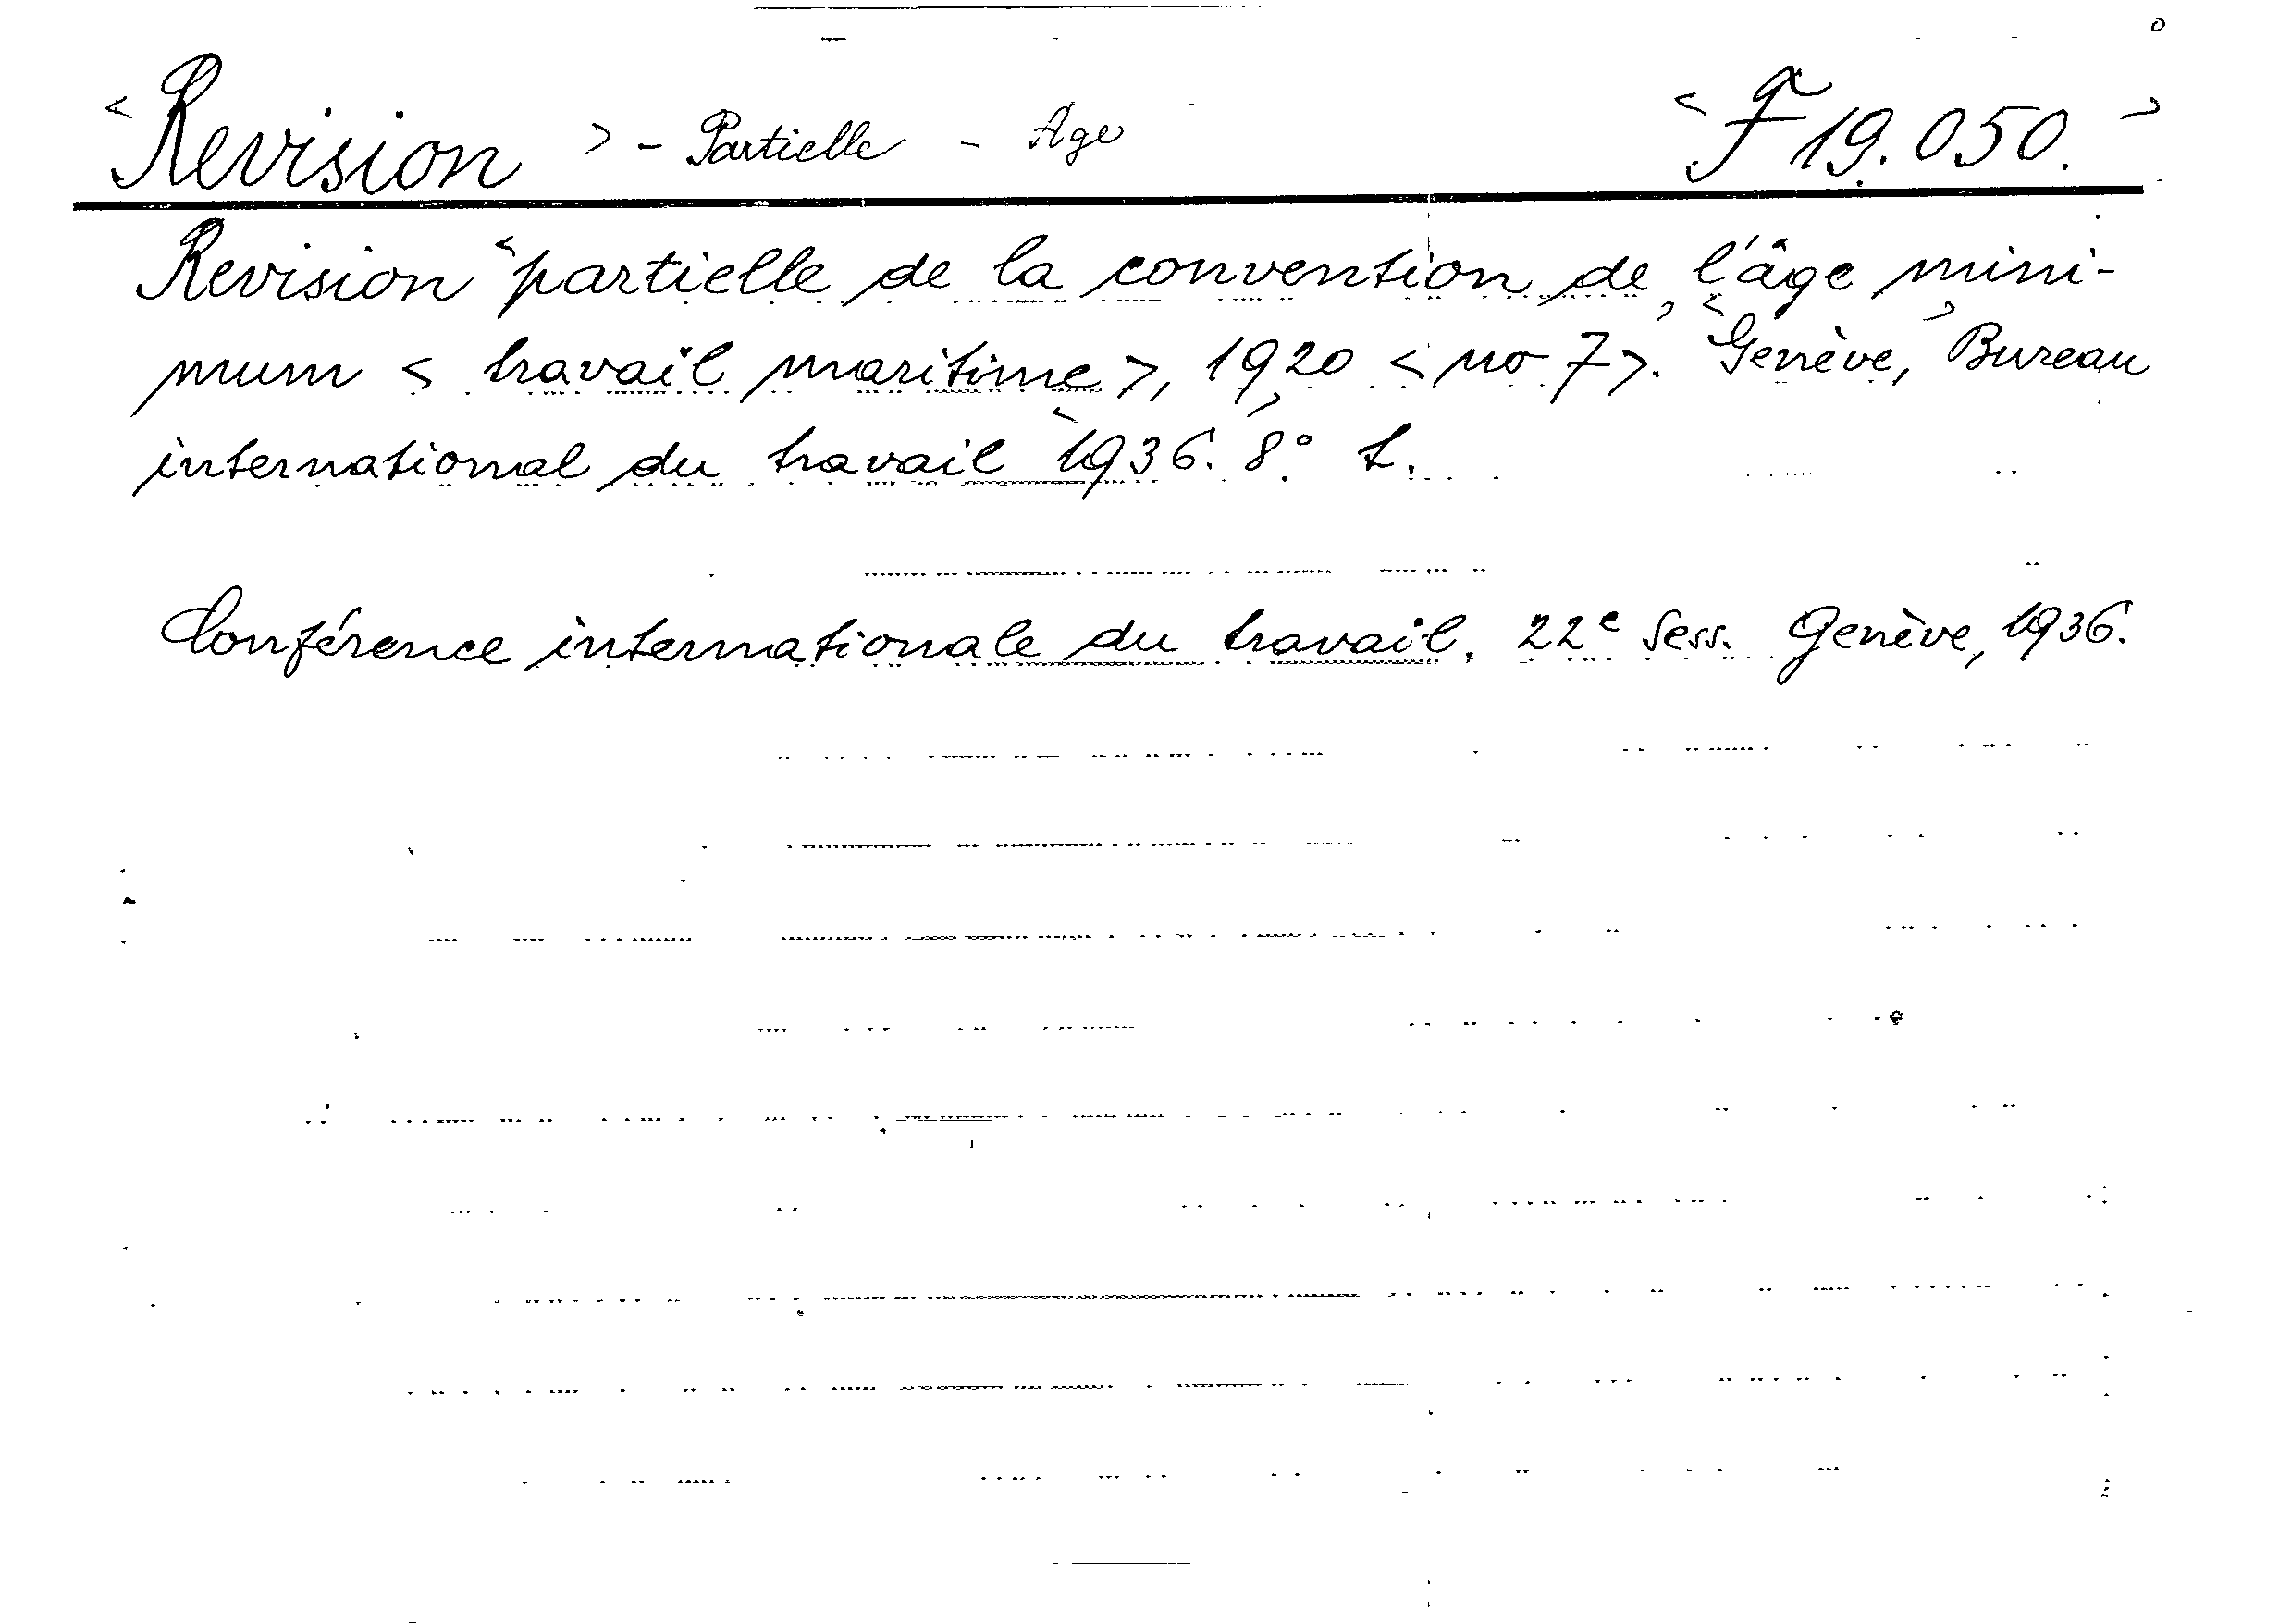 < Revision > - Partielle - Age < F 19.050. >
Revision < partielle de la convention de l'âge mini-
mum < travail maritime >, 1920 < no 7 >. > < Genève, > Bureau
international du travail < 1936. > 8° L.
Conférence internationale du travail. 22e Sess. Genève, 1936.